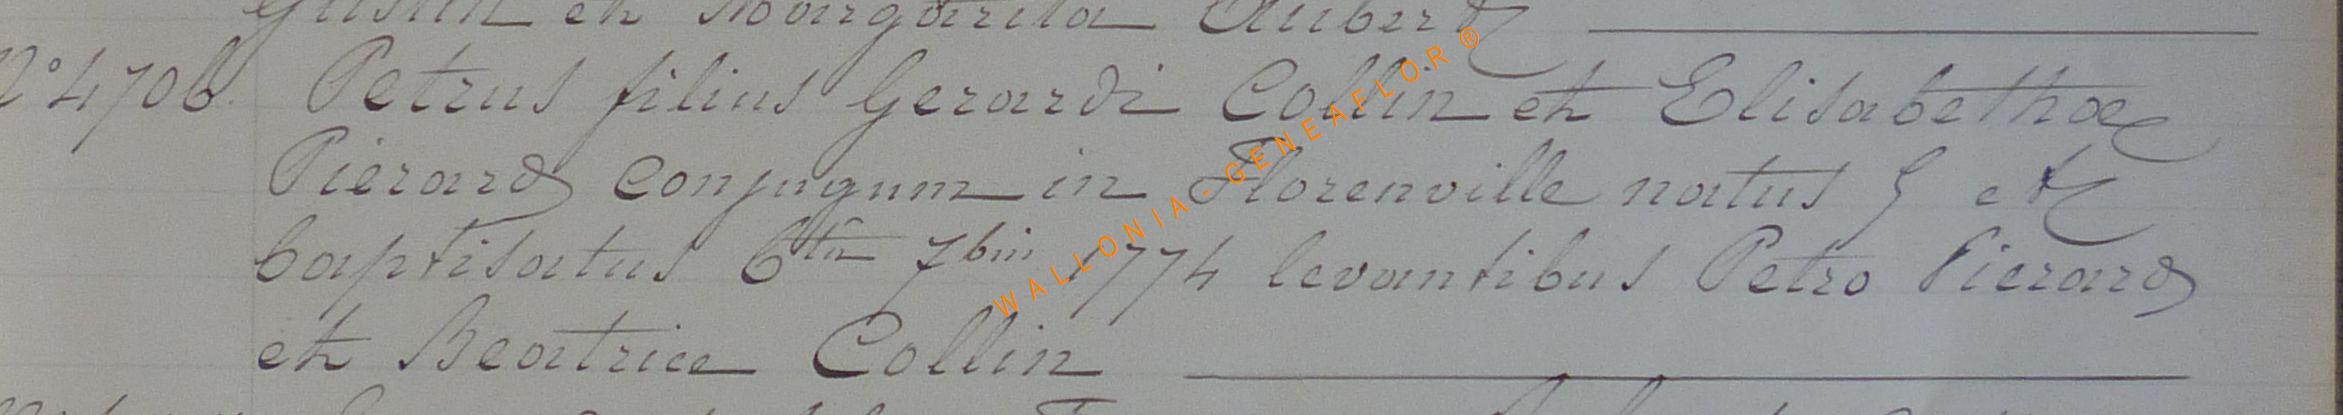 Justin et Margarita Aubert
N° 4706. Petrus filius Gerardi Collin et Elisabethae
Pierard conjugum in Florenville natus 5 et
baptisatus 6ta 7bris 1774 levantibus Petro Pierard
et Beatrice Collin
WALLONIA - GENEAFLOR ®